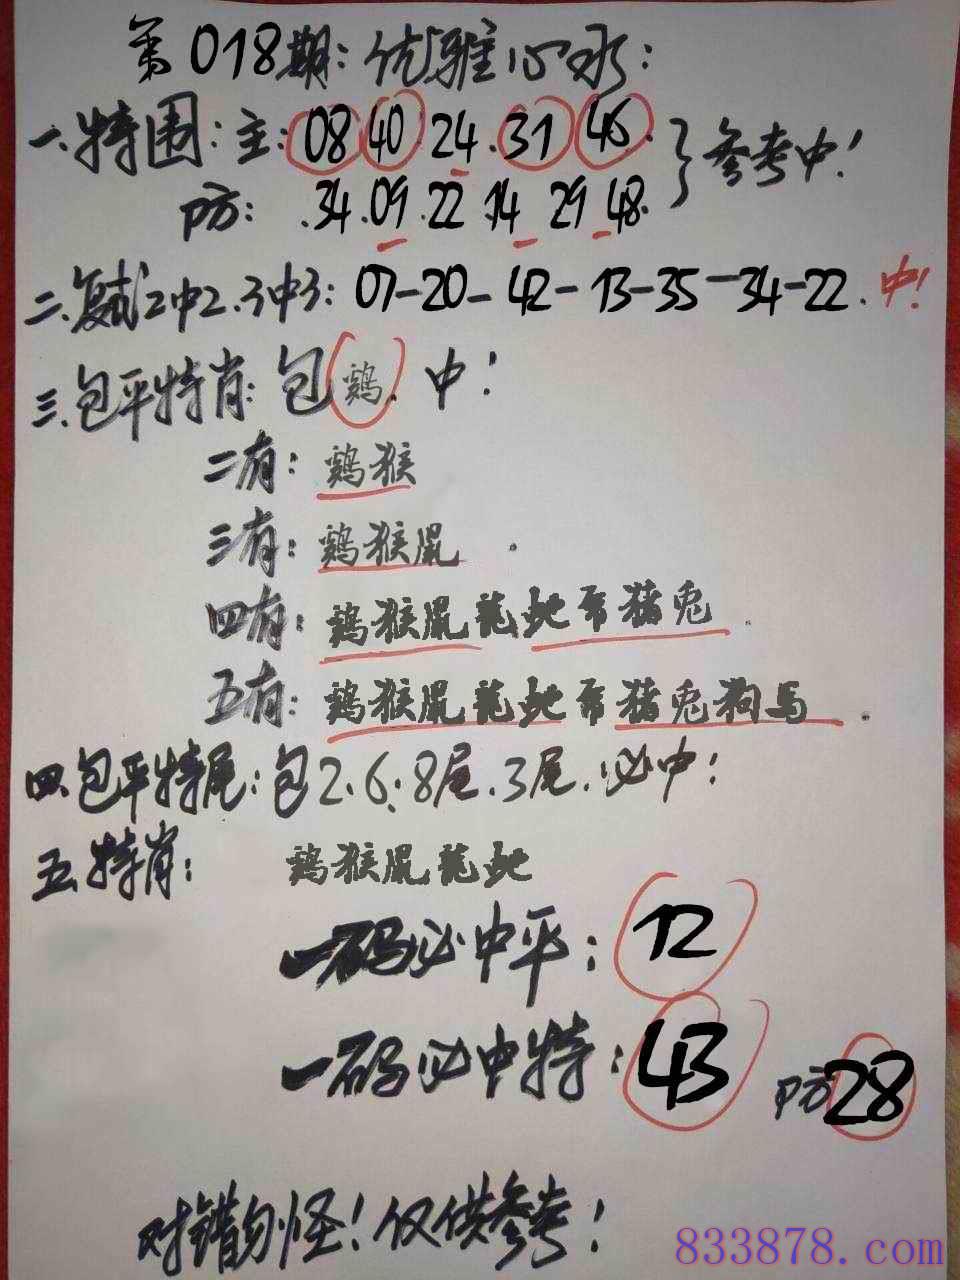 第018期:优雅心水:
一.特围:主:08 40.24.31 46.}参考中!
防: .34.09.22 14 29 48.
二.复式2中2.3中3: 07-20-42-13-35-34-22.中!
三.包平特肖:包鷄.中!
二有:鷄猴
三有:鷄猴鼠.
四有:鷄猴鼠龍蛇 猪兔.
五有:鷄猴鼠龍蛇 猪兔狗马.
四.包平特尾:包2.6.8尾.3尾.必中!
五.特肖: 鷄猴鼠龍蛇
一码必中平:12
一码必中特:43 防28
对错勿怪!仅供参考!
833878.com